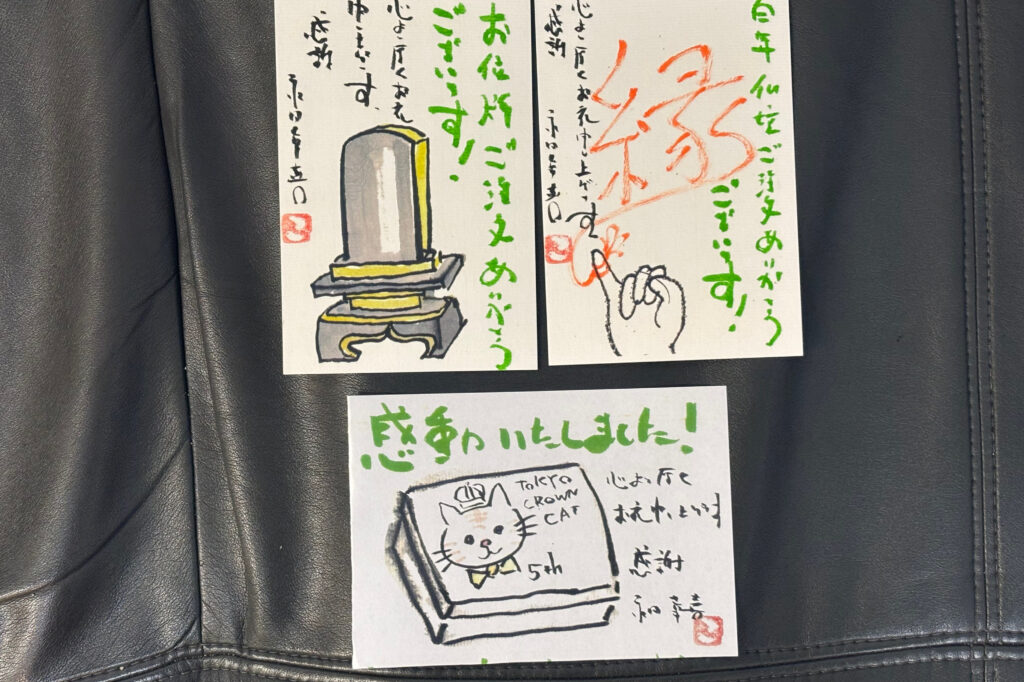 お位牌ご注文ありがとう
ございます!
心より厚くお礼
申し上げます
感謝
百年仏壇ご注文ありがとう
ございます!
縁
心より厚くお礼申し上げます
感謝
感動いたしました!
TOKYO
CROWN
CAT
5th
心より厚く
お礼申し上げます
感謝